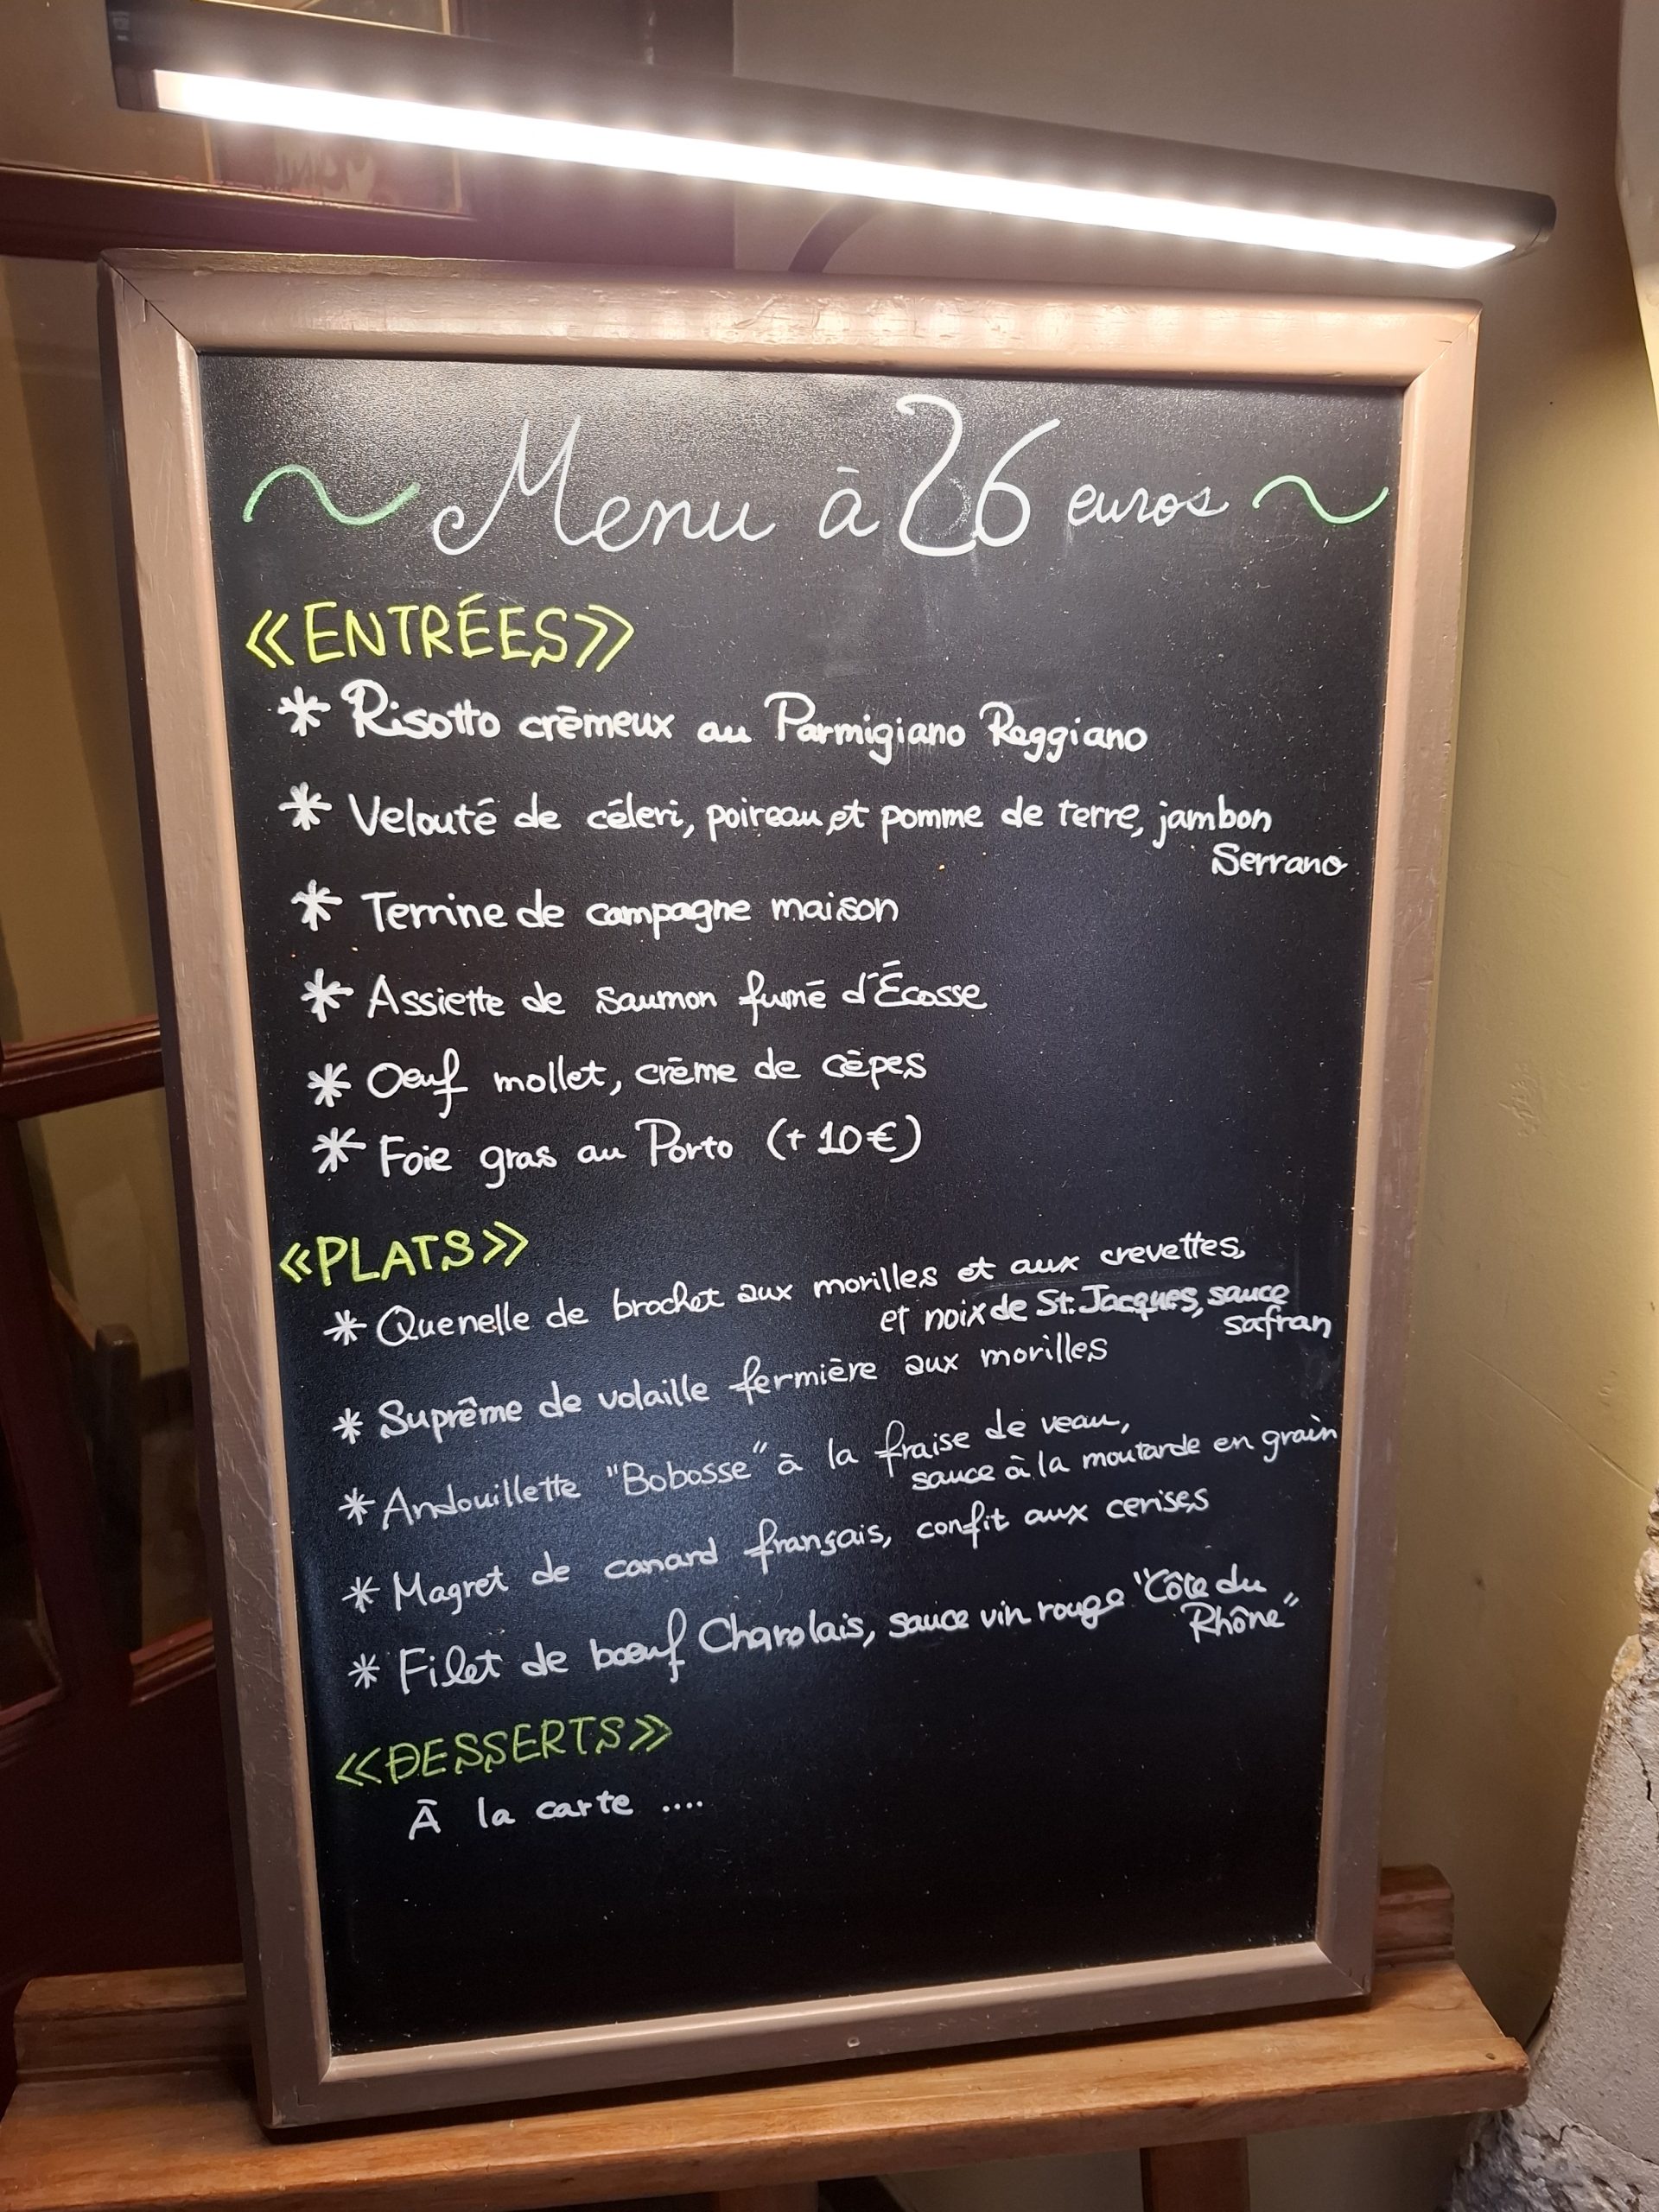 ~ Menu à 26 euros ~
«ENTRÉES»
* Risotto crèmeux au Parmigiano Reggiano
* Velouté de céleri, poireau et pomme de terre, jambon
Serrano
* Terrine de campagne maison
* Assiette de saumon fumé d'Écosse
* Oeuf mollet, crème de cèpes
* Foie gras au Porto (+ 10€)
«PLATS»
* Quenelle de brochet aux morilles et aux crevettes,
et noix de St. Jacques, sauce
safran
* Suprême de volaille fermière aux morilles
* Andouillette "Bobosse" à la fraise de veau,
sauce à la moutarde en grain
* Magret de canard français, confit aux cerises
* Filet de bœuf Charolais, sauce vin rouge "Côte du
Rhône"
«DESSERTS»
À la carte ....